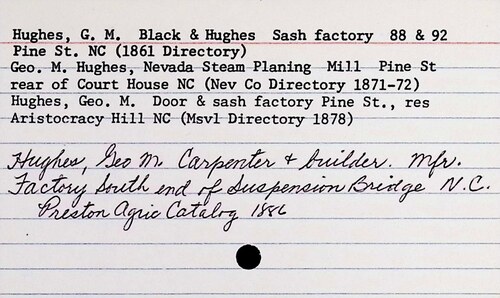 Hughes, G. M. Black & Hughes Sash factory 88 & 92
Pine St. NC (1861 Directory)
Geo. M. Hughes, Nevada Steam Planing Mill Pine St
rear of Court House NC (Nev Co Directory 1871-72)
Hughes, Geo. M. Door & sash factory Pine St., res
Aristocracy Hill NC (Msvl Directory 1878)
Hughes, Geo M. Carpenter & builder. Mfr.
Factory South end of Suspension Bridge N.C.
Preston Agric Catalog 1886